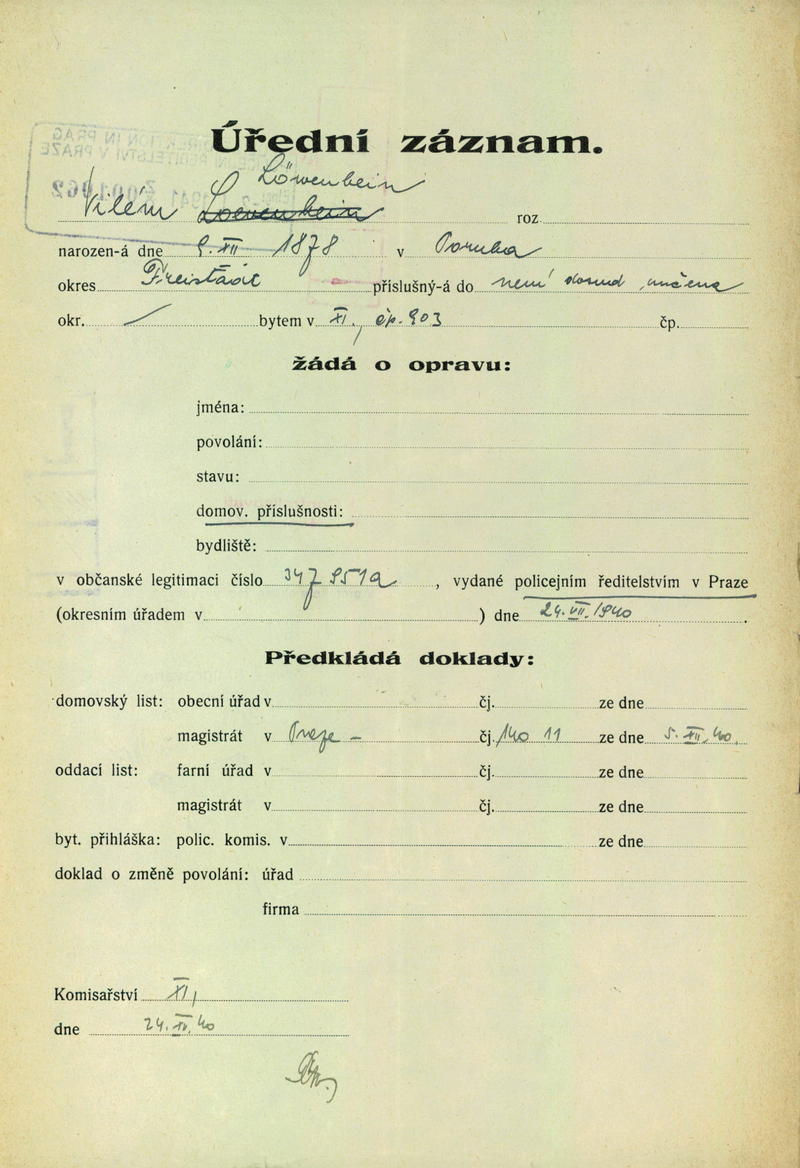 Úřední záznam.
Löwenbein
Vilém roz
narozen-á dne 9. XII 1878 v
okres příslušný-á do
okr. bytem v XI, čp. 903 čp.
žádá o opravu:
jména:
povolání:
stavu:
domov. příslušnosti:
bydliště:
v občanské legitimaci číslo , vydané policejním ředitelstvím v Praze
(okresním úřadem v ) dne 24. VII. 1940 .
Předkládá doklady:
domovský list: obecní úřad v čj. ze dne
magistrát v Praze – čj. ze dne 5. XII. 40.
oddací list: farní úřad v čj. ze dne
magistrát v čj. ze dne
byt. přihláška: polic. komis. v ze dne
doklad o změně povolání: úřad
firma
Komisařství XI,
dne 24. XII. 40